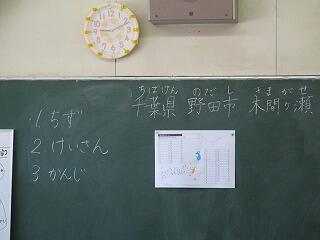 ちばけん のだし きまがせ
千葉県 野田市 木間ヶ瀬
1. ちず
2. けいさん
3. かんじ